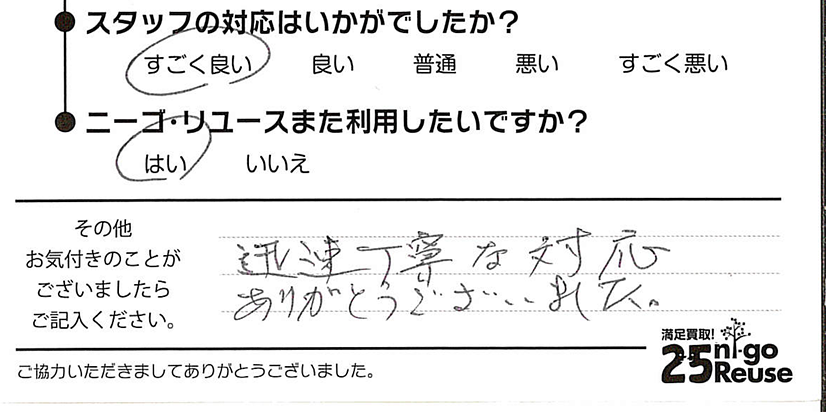 ● スタッフの対応はいかがでしたか？
すごく良い 良い 普通 悪い すごく悪い
● ニーゴ・リユースまた利用したいですか？
はい いいえ
その他
お気付きのことが
ございましたら
ご記入ください。
迅速丁寧な対応
ありがとうございました。
ご協力いただきましてありがとうございました。
満足買取!
25 ni-go
Reuse